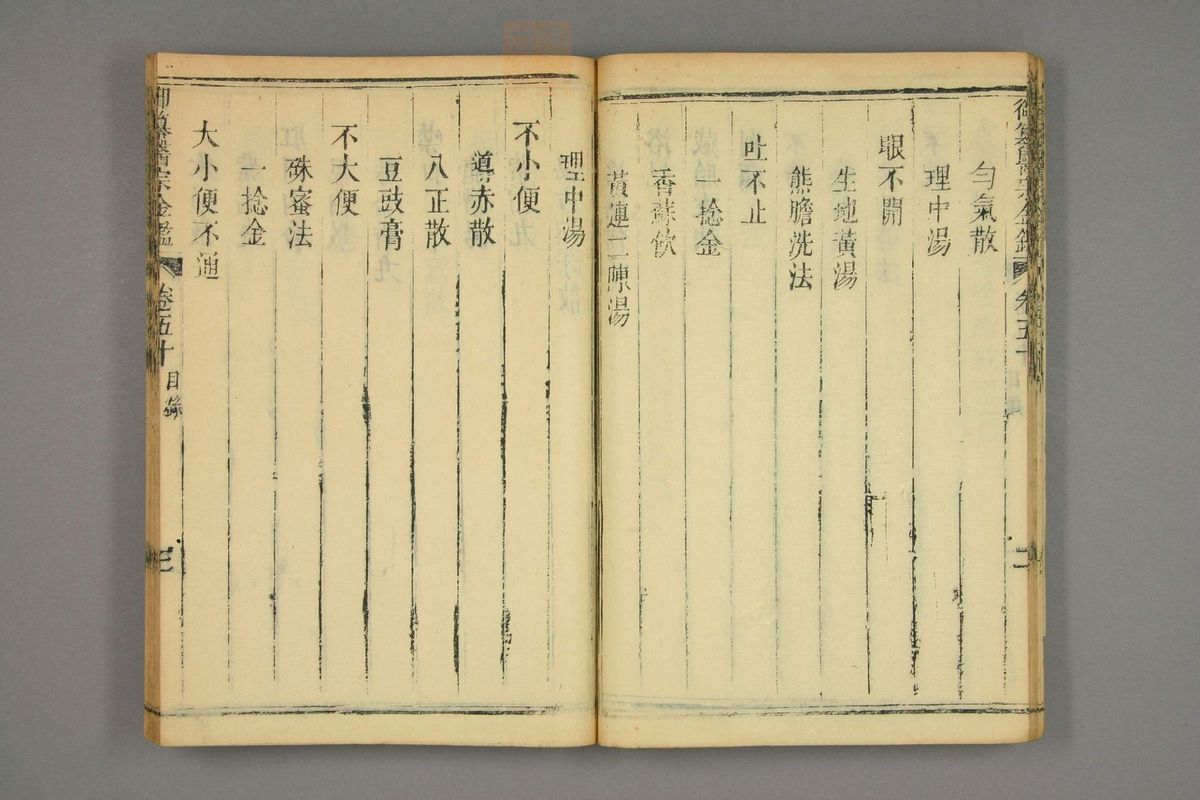 御纂醫宗金鑑 卷五十 目錄 二
勻氣散
理中湯
眼不開
生地黃湯
熊膽洗法
吐不止
一捻金
香蘇飲
黃連二陳湯
理中湯
不小便
導赤散
八正散
豆豉膏
不大便
硃蜜法
一捻金
大小便不通
御纂醫宗金鑑 卷五十 目錄 三